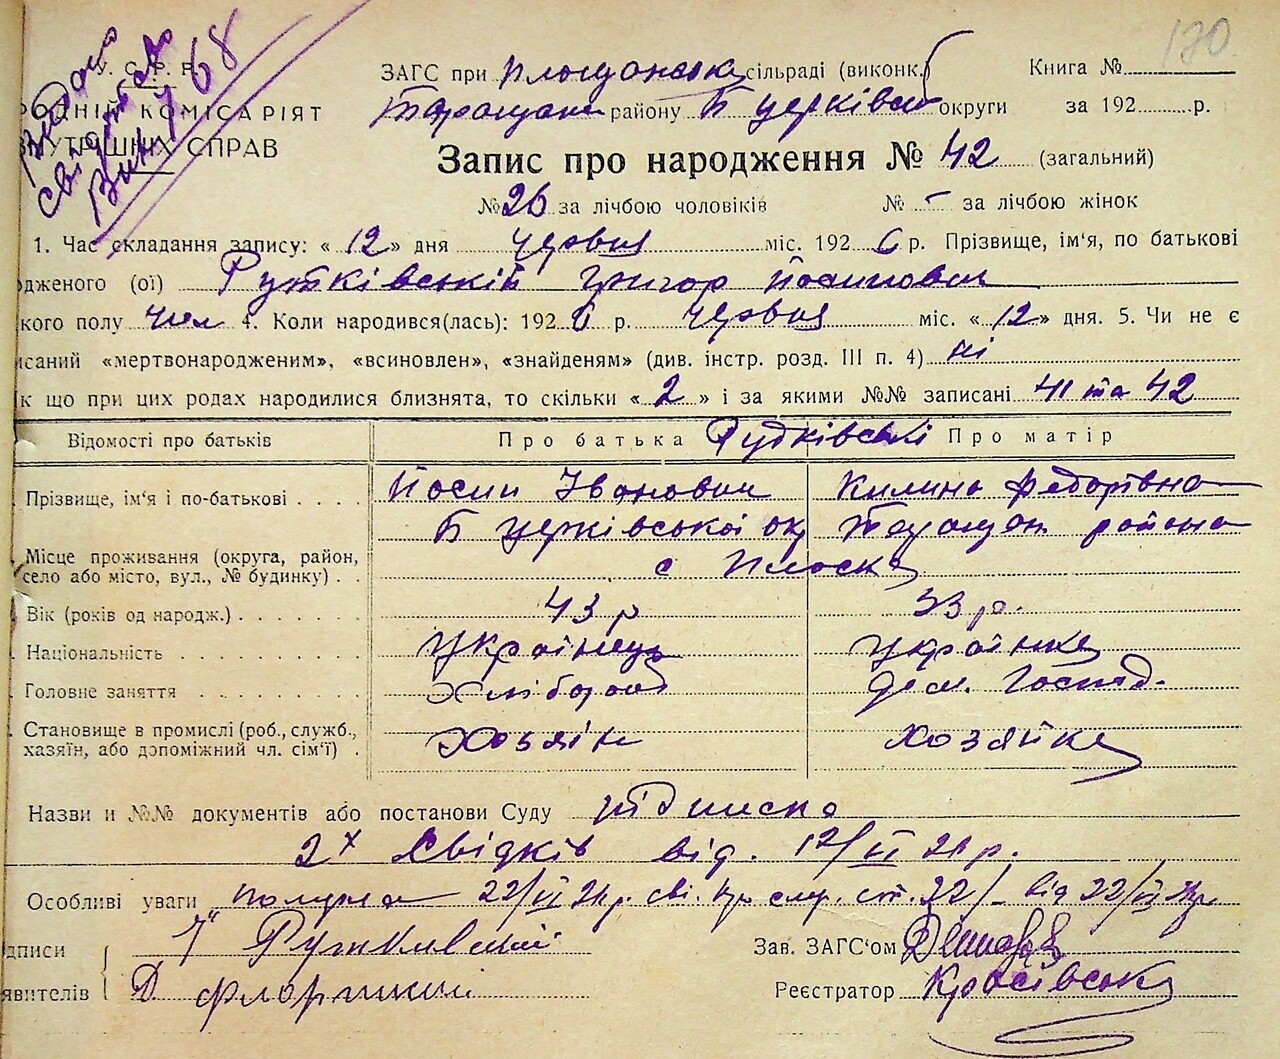 170
Видано
свідоцтво
68
У. С. Р. Р.
РОДНІЙ КОМІСАРІЯТ
ВНУТРІШНІХ СПРАВ
ЗАГС при Плосцанській сільраді (виконк.) Книга №
Таращан району Б церківськ округи за 192 р.
Запис про народження № 42 (загальний)
№ 26 за лічбою чоловіків № - за лічбою жінок
1. Час складання запису: « 12 » дня червня міс. 192 6 р. Прізвище, ім'я, по батькові
дженого (ої) Рутківський Григор Йосипович
кого полу чол 4. Коли народився(лась): 192 6 р. червня міс. « 12 » дня. 5. Чи не є
исаний «мертвонародженим», «всиновлен», «знайденям» (див. інстр. розд. III п. 4) ні
к що при цих родах народилися близнята, то скільки « 2 » і за якими №№ записані 41 та 42
Відомості про батьків Про батька Рудківські Про матір
Прізвище, ім'я і по-батькові Йосип Іванович Килина Федорівна
Б церківської ок Таращан района
Місце проживання (округа, район, село або місто, вул., № будинку) с Плоска
Вік (років од народж.) 43 р 33 р.
Національність українець українка
Головне заняття Хлібороб Дом. Господ.
Становище в промислі (роб., служб., хазяїн, або допоміжний чл. сім'ї) Хозяїн хозяйка
Назви и №№ документів або постанови Суду підписка
2х свідків від. 12/VI 26 р.
Особливі уваги 22/VI 26р. сві. пр. смр. ст. 22/- від 22/VI 26р.
дписи Рутковский Зав. ЗАГС'ом
явителів Д Реєстратор Красівська